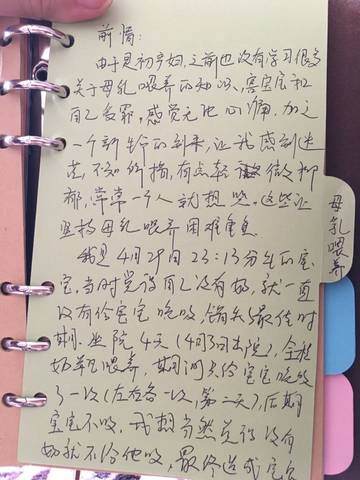 前情:
由于是初产妇,之前也没有学习很多
关于母乳喂养的知识,害宝宝和
自己受罪。感觉无比心痛。加之
一个新生命的到来,让我感到迷
茫,不知所措,有点轻微抑
郁,常常一个人就想哭。这些让
坚持母乳喂养困难重重
我是4月29日23:13分生的宝
宝,当时觉得自己没有奶,就一直
没有给宝宝吮吸,错过最佳时
期。坐院4天(4月3日出院),全程
奶粉喂养,期间只给宝宝吮吸
了一次(左右各一次,第二天),后期
宝宝不吸,我想当然觉得没有
奶就不给他吸,最终造成宝宝
母乳喂养